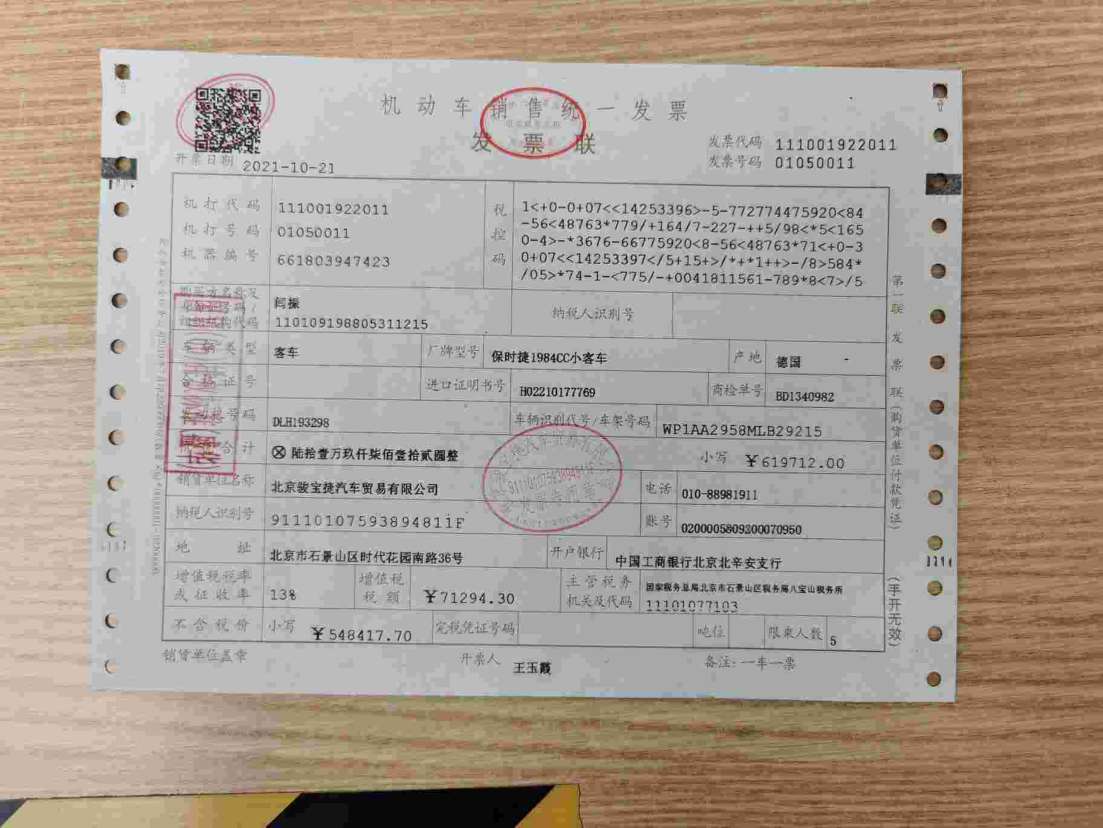 机动车销售统一发票
发票联
发票代码 111001922011
发票号码 01050011
开票日期 2021-10-21
机打代码 111001922011
机打号码 01050011
机器编号 661803947423
税控码
1<+0-0+07<<14253396>-5-772774475920<84
-56<48763*779/+164/7-227-++5/98<*5<165
0-4>-*3676-66775920<8-56<48763*71<+0-3
0+07<<14253397</5+15+>/*+*1++>-/8>584*
/05>*74-1-<775/-+0041811561-789*8<7>/5
购买方名称及
身份证号码/
组织机构代码
闫操
110109198805311215
纳税人识别号
车辆类型 客车 厂牌型号 保时捷1984CC小客车 产地 德国 -
合格证号 进口证明书号 H02210177769 商检单号 BD1340982
发动机号码 DLH193298 车辆识别代号/车架号码 WP1AA2958MLB29215
价税合计 ⊗ 陆拾壹万玖仟柒佰壹拾贰圆整 小写 ￥619712.00
销货单位名称 北京骏宝捷汽车贸易有限公司 电话 010-88981911
纳税人识别号 91110107593894811F 账号 0200005809200070950
地址 北京市石景山区时代花园南路36号 开户银行 中国工商银行北京北辛安支行
增值税税率或征收率 13% 增值税税额 ￥71294.30 主管税务机关及代码 国家税务总局北京市石景山区税务局八宝山税务所
11101077103
不含税价 小写 ￥548417.70 完税凭证号码 吨位 限乘人数 5
销货单位盖章 开票人 王玉霞 备注：一车一票
第一联 发票联(购货单位付款凭证)
(手开无效)